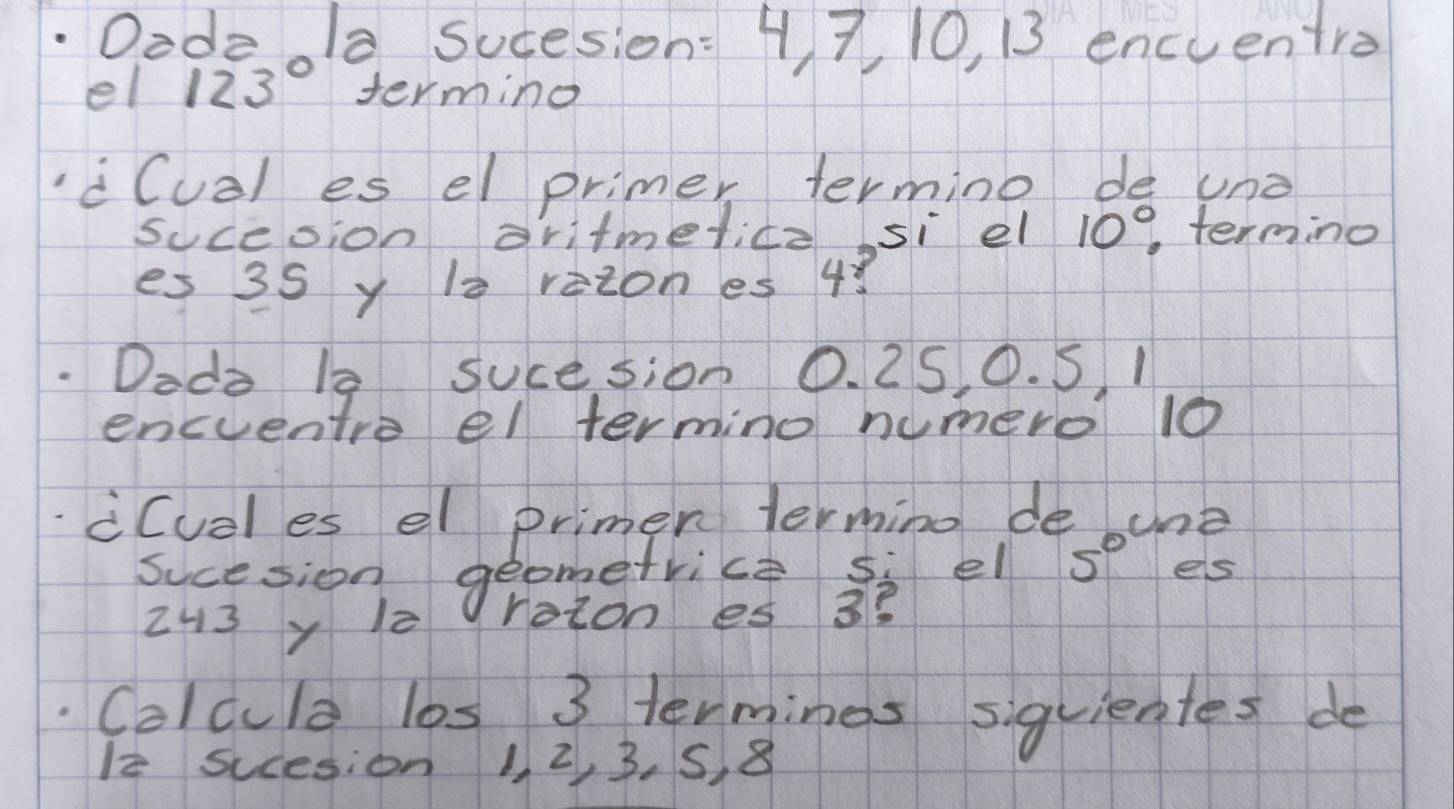 DIA MES AÑO
· Dada la sucesion: 4, 7, 10, 13 encuentra
el 123° termino
· ¿Cual es el primer termino de una
sucesion aritmetica, si el 10°. termino
es 35 y la razon es 4?
· Dada la sucesion 0.25, 0.5, 1
encuentra el termino numero 10
· ¿Cual es el primer termino de una
sucesion geometrica si el 5° es
243 y la razon es 3?
· Calcula los 3 terminos siguientes de
la sucesion 1, 2, 3, 5, 8